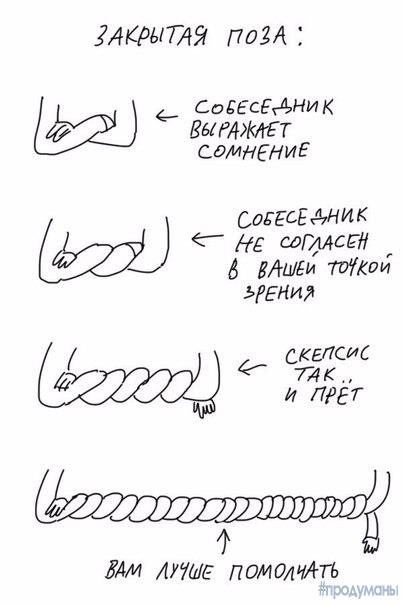 ЗАКРЫТАЯ ПОЗА:
← СОБЕСЕДНИК
ВЫРАЖАЕТ
СОМНЕНИЕ
← СОБЕСЕДНИК
НЕ СОГЛАСЕН
В ВАШЕЙ ТОЧКОЙ
ЗРЕНИЯ
← СКЕПСИС
ТАК
И ПРЁТ
↑
ВАМ ЛУЧШЕ ПОМОЛЧАТЬ
#продуманы